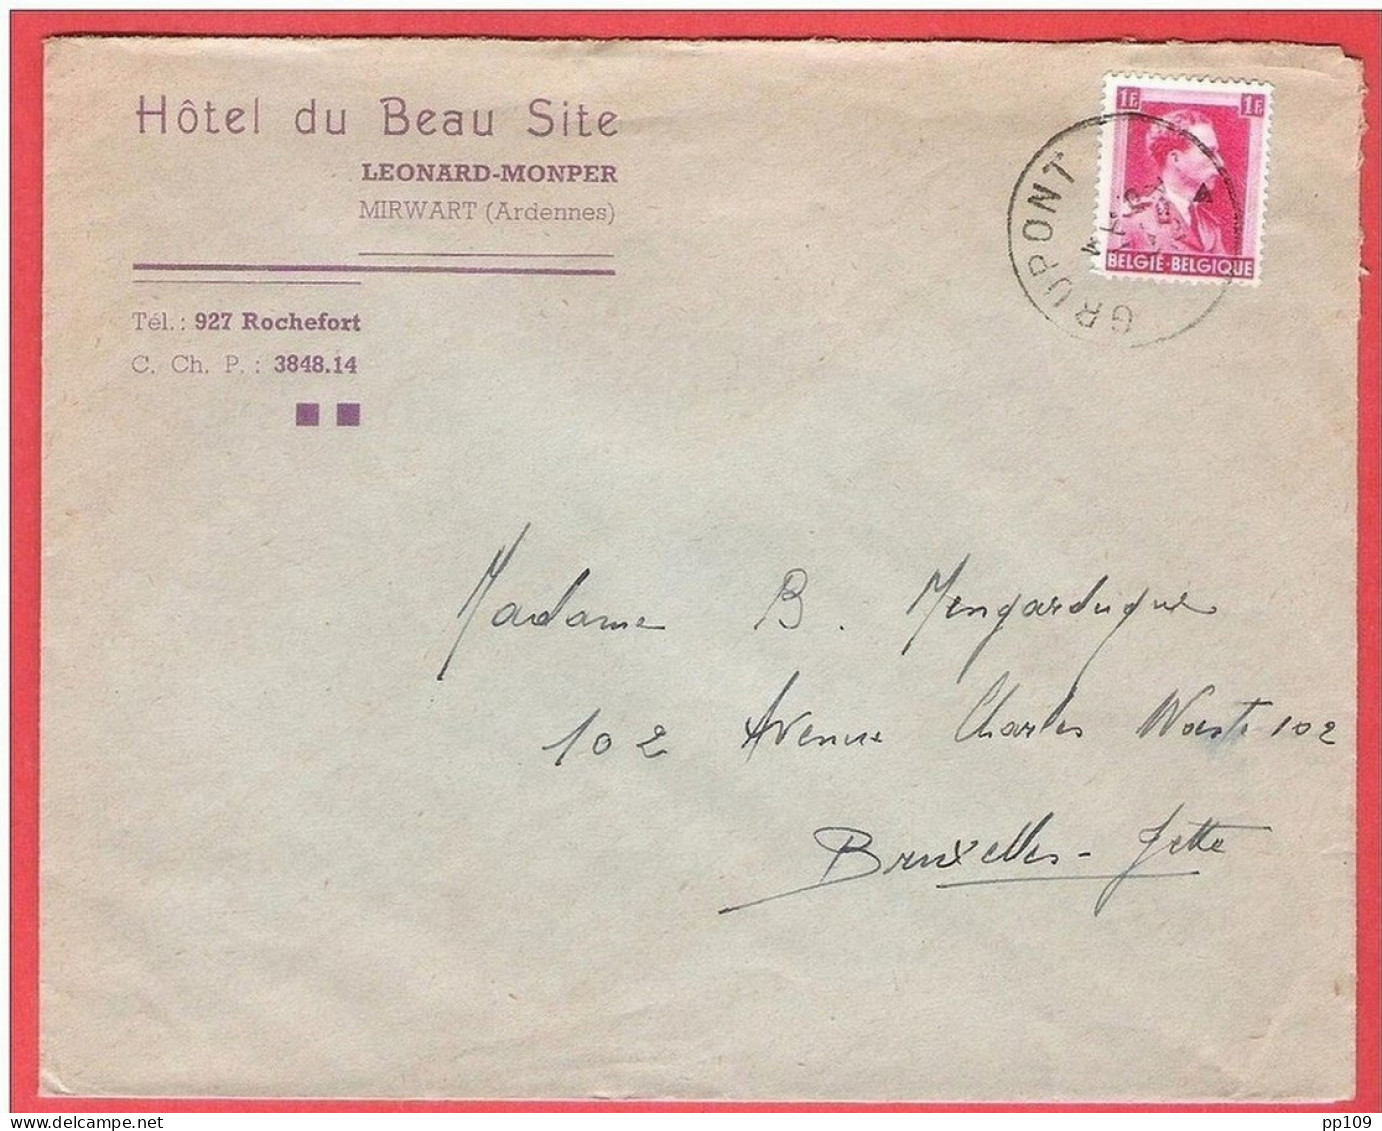 Hôtel du Beau Site
LEONARD-MONPER
MIRWART (Ardennes)
Tél.: 927 Rochefort
C. Ch. P.: 3848.14
1Fr 1Fr
BELGIË-BELGIQUE
GRUPONT
Madame B.
102 Avenue Charles Woeste 102
Bruxelles - Jette
pp109